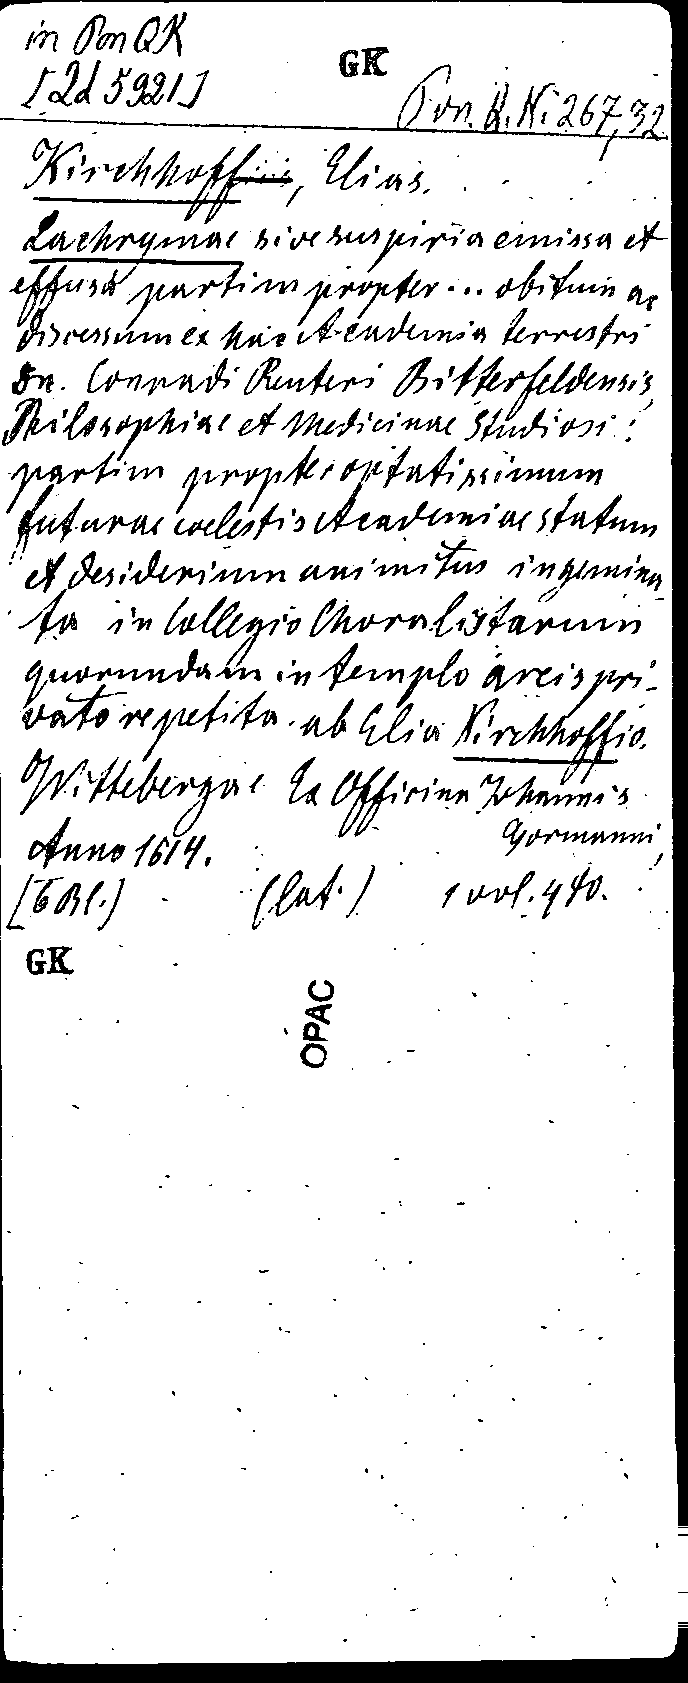 in Pon QK
GK
[2d 5921]
Pon. Q.N. 267,32
Kirchhoffius, Elias.
Lachrymae sive suspiria emissa et
effusa partim propter... obitum ac
discessum ex hac Academia terrestri
Dn. Conradi Reuteri Bitterfeldensis,
Philosophiae et Medicinae Studiosi:
partim propter optatissimum
futurae coelestis Academiae statum
et desiderium animitus ingemina-
ta in Collegio Choralistarum
quorundam in templo arcis pri-
vato repetita. ab Elia Kirchhoffio.
Wittebergae Ex Officina Johannis
Gormanni,
Anno 1614.
[6 Bl.] (lat.) 1 vol. 4to.
GK
OPAC